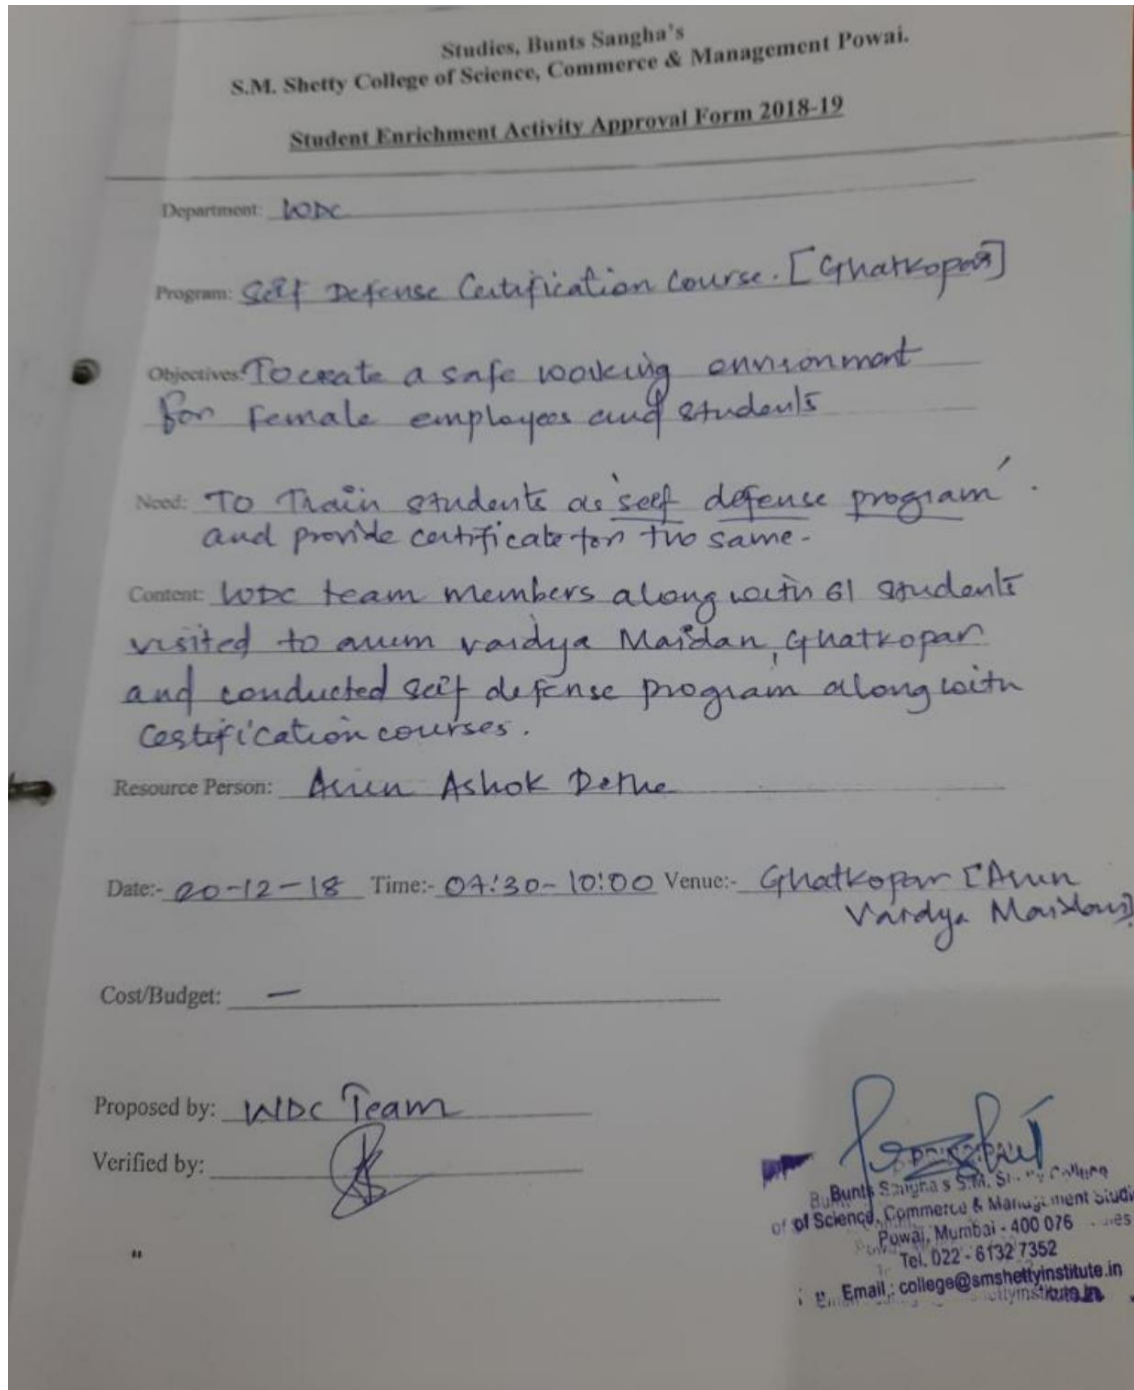 Studies, Bunts Sangha's
S.M. Shetty College of Science, Commerce & Management Powai.
Student Enrichment Activity Approval Form 2018-19
Department: WDC
Program: Self Defense Certification Course. [Ghatkopar]
Objectives: To create a safe working environment
for female employees and students
Need: To Train students as 'self defense program'.
and provide certificate for the same.
Content: WDC team members along with 61 students
visited to Arun Vaidya Maidan, Ghatkopar
and conducted self defense program along with
Certification courses.
Resource Person: Arun Ashok
Date:- 20-12-18 Time:- 07:30-10:00 Venue:- Ghatkopar [Arun
Vaidya Maidan]
Cost/Budget: —
Proposed by: WDC Team
Verified by:
Bunts Sangha's S.M. Shetty College
of Science, Commerce & Management Studies
Powai, Mumbai - 400 076
Tel. 022 - 6132 7352
Email : college@smshettyinstitute.in